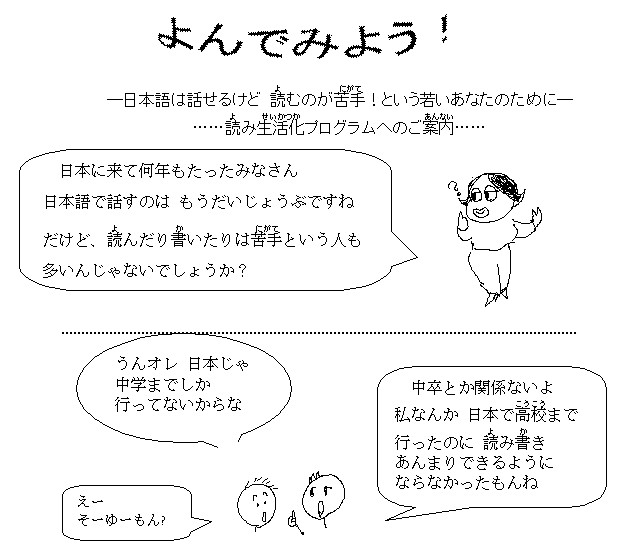 よんでみよう!
―日本語は話せるけど 読むのが苦手!という若いあなたのために―
……読み生活化プログラムへのご案内……
日本に来て何年もたったみなさん
日本語で話すのは もうだいじょうぶですね
だけど、読んだり書いたりは苦手という人も
多いんじゃないでしょうか?
うんオレ 日本じゃ
中学までしか
行ってないからな
中卒とか関係ないよ
私なんか 日本で高校まで
行ったのに 読み書き
あんまりできるように
ならなかったもんね
えー
そーゆーもん?